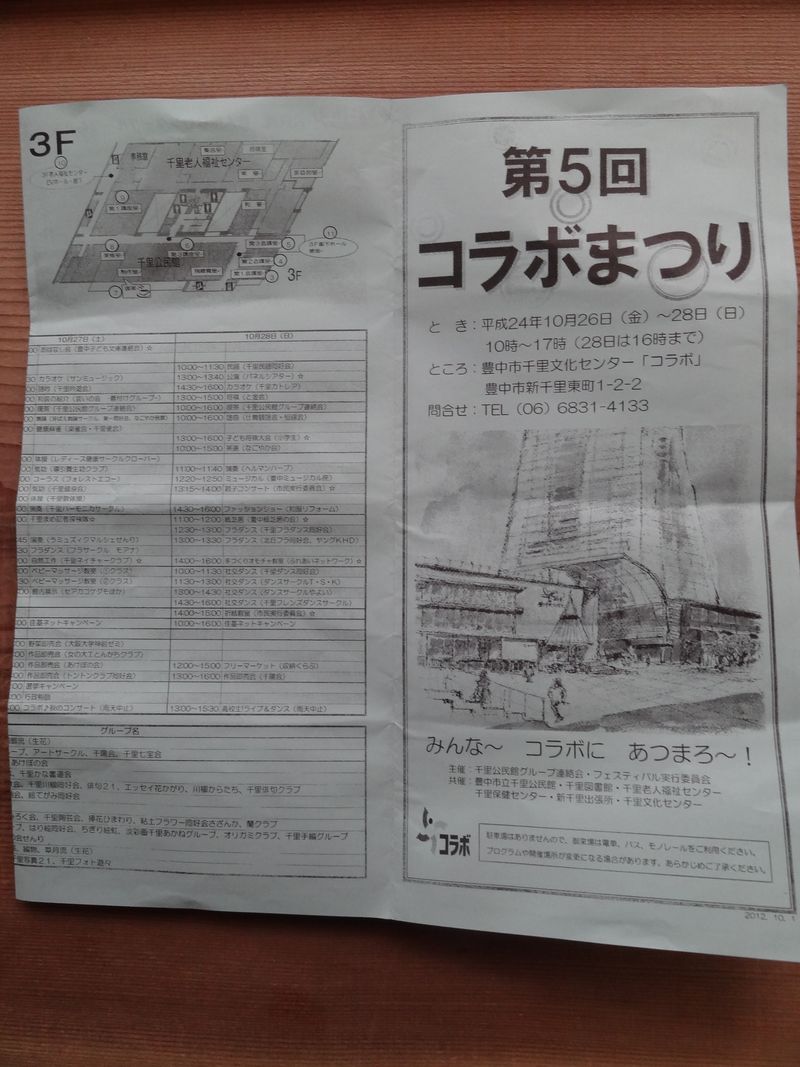 3F
千里老人福祉センター
千里公民館
3F
10月27日(土) 10月28日(日)
おはなし会(豊中子ども文庫連絡会)☆
10:00～11:30 民謡(千里民謡同好会)
13:00～13:40 公演(パネルシアター)☆
カラオケ(サンミュージック) 14:30～16:00 カラオケ(千里カトレア)
13:00～15:00 将棋(と金会)
喫茶(千里公民館グループ連絡会) 10:00～16:00 喫茶(千里公民館グループ連絡会)
13:00～16:00 子ども将棋大会(小学生)☆
10:00～15:00 茶道(なごやか会)
体操(レディース健康サークルクローバー)
気功(導引養生功クラブ) 11:00～11:40 演奏(ヘルマンハープ)
コーラス(フォレストエコー) 12:20～12:50 ミュージカル(豊中ミュージカル座)
13:15～14:00 親子コンサート(市民実行委員会)☆
演奏(千里ハーモニカサークル) 14:30～16:00 ファッションショー(和服リフォーム)
千里まめ記者探検隊☆ 11:00～12:00 紙芝居(豊中紙芝居の会)☆
12:30～13:00 フラダンス(千里フラダンス同好会)
演奏(ラミュズィクマルシェせんり) 13:00～13:30 フラダンス(北丘フラ同好会、ヤングKHD)
フラダンス(フラサークル モアナ)
自然工作(千里ネイチャークラブ)☆ 14:00～16:00 手づくりおもちゃ教室(ふれあいネットワーク)☆
ベビーマッサージ教室(①クラス) 10:00～11:30 社交ダンス(千里ダンス同好会)
ベビーマッサージ教室(②クラス) 11:30～13:00 社交ダンス(ダンスサークルT・S・K)
館内展示(セアカゴケグモほか) 13:00～14:30 社交ダンス(ダンスサークルやよい)
14:30～16:00 社交ダンス(千里フレンズダンスサークル)
14:00～15:00 折紙教室(市民実行委員会)☆
住基ネットキャンペーン 10:00～16:00 住基ネットキャンペーン
野菜即売会(大阪大学神前ゼミ)
作品即売会(女の大工とんかちクラブ)
作品即売会(あけぼの会) 12:00～15:00 フリーマーケット(収納くらぶ)
作品即売会(トントンクラブ同好会) 13:00～16:00 作品即売会(千陽会)
選挙キャンペーン
行政相談
コラボ♪秋のコンサート(雨天中止) 13:00～15:30 高校生!ライブ&ダンス(雨天中止)
グループ名
(生花)
ープ、アートサークル、千陽会、千里七宝会
あけぼの会
千里かな書道会
千里川柳同好会、俳句21、エッセイ花かがり、川柳からたち、千里俳句クラブ
会、絵てがみ同好会
ろく会、千里陶芸会、押花ひまわり、粘土フラワー同好会さざんか、蘭クラブ
ープ、はり絵同好会、ちぎり絵虹、淡彩画千里あかねグループ、オリガミクラブ、千里手編グループ
会せんり
、編物、草月流(生花)
千里写真21、千里フォト遊々
第5回
コラボまつり
とき:平成24年10月26日(金)～28日(日)
10時～17時(28日は16時まで)
ところ:豊中市千里文化センター「コラボ」
豊中市新千里東町1-2-2
問合せ:TEL(06)6831-4133
みんな～ コラボに あつまろ～!
主催:千里公民館グループ連絡会・フェスティバル実行委員会
共催:豊中市立千里公民館・千里図書館・千里老人福祉センター
千里保健センター・新千里出張所・千里文化センター
コラボ
駐車場はありませんので、御来場は電車、バス、モノレールをご利用ください。
プログラムや開催場所が変更になる場合があります。あらかじめご了承ください。
2012. 10. 1